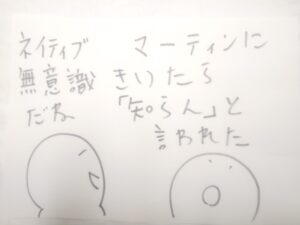 ネイティブ
無意識
だね
マーティンに
きいたら
「知らん」と
言われた